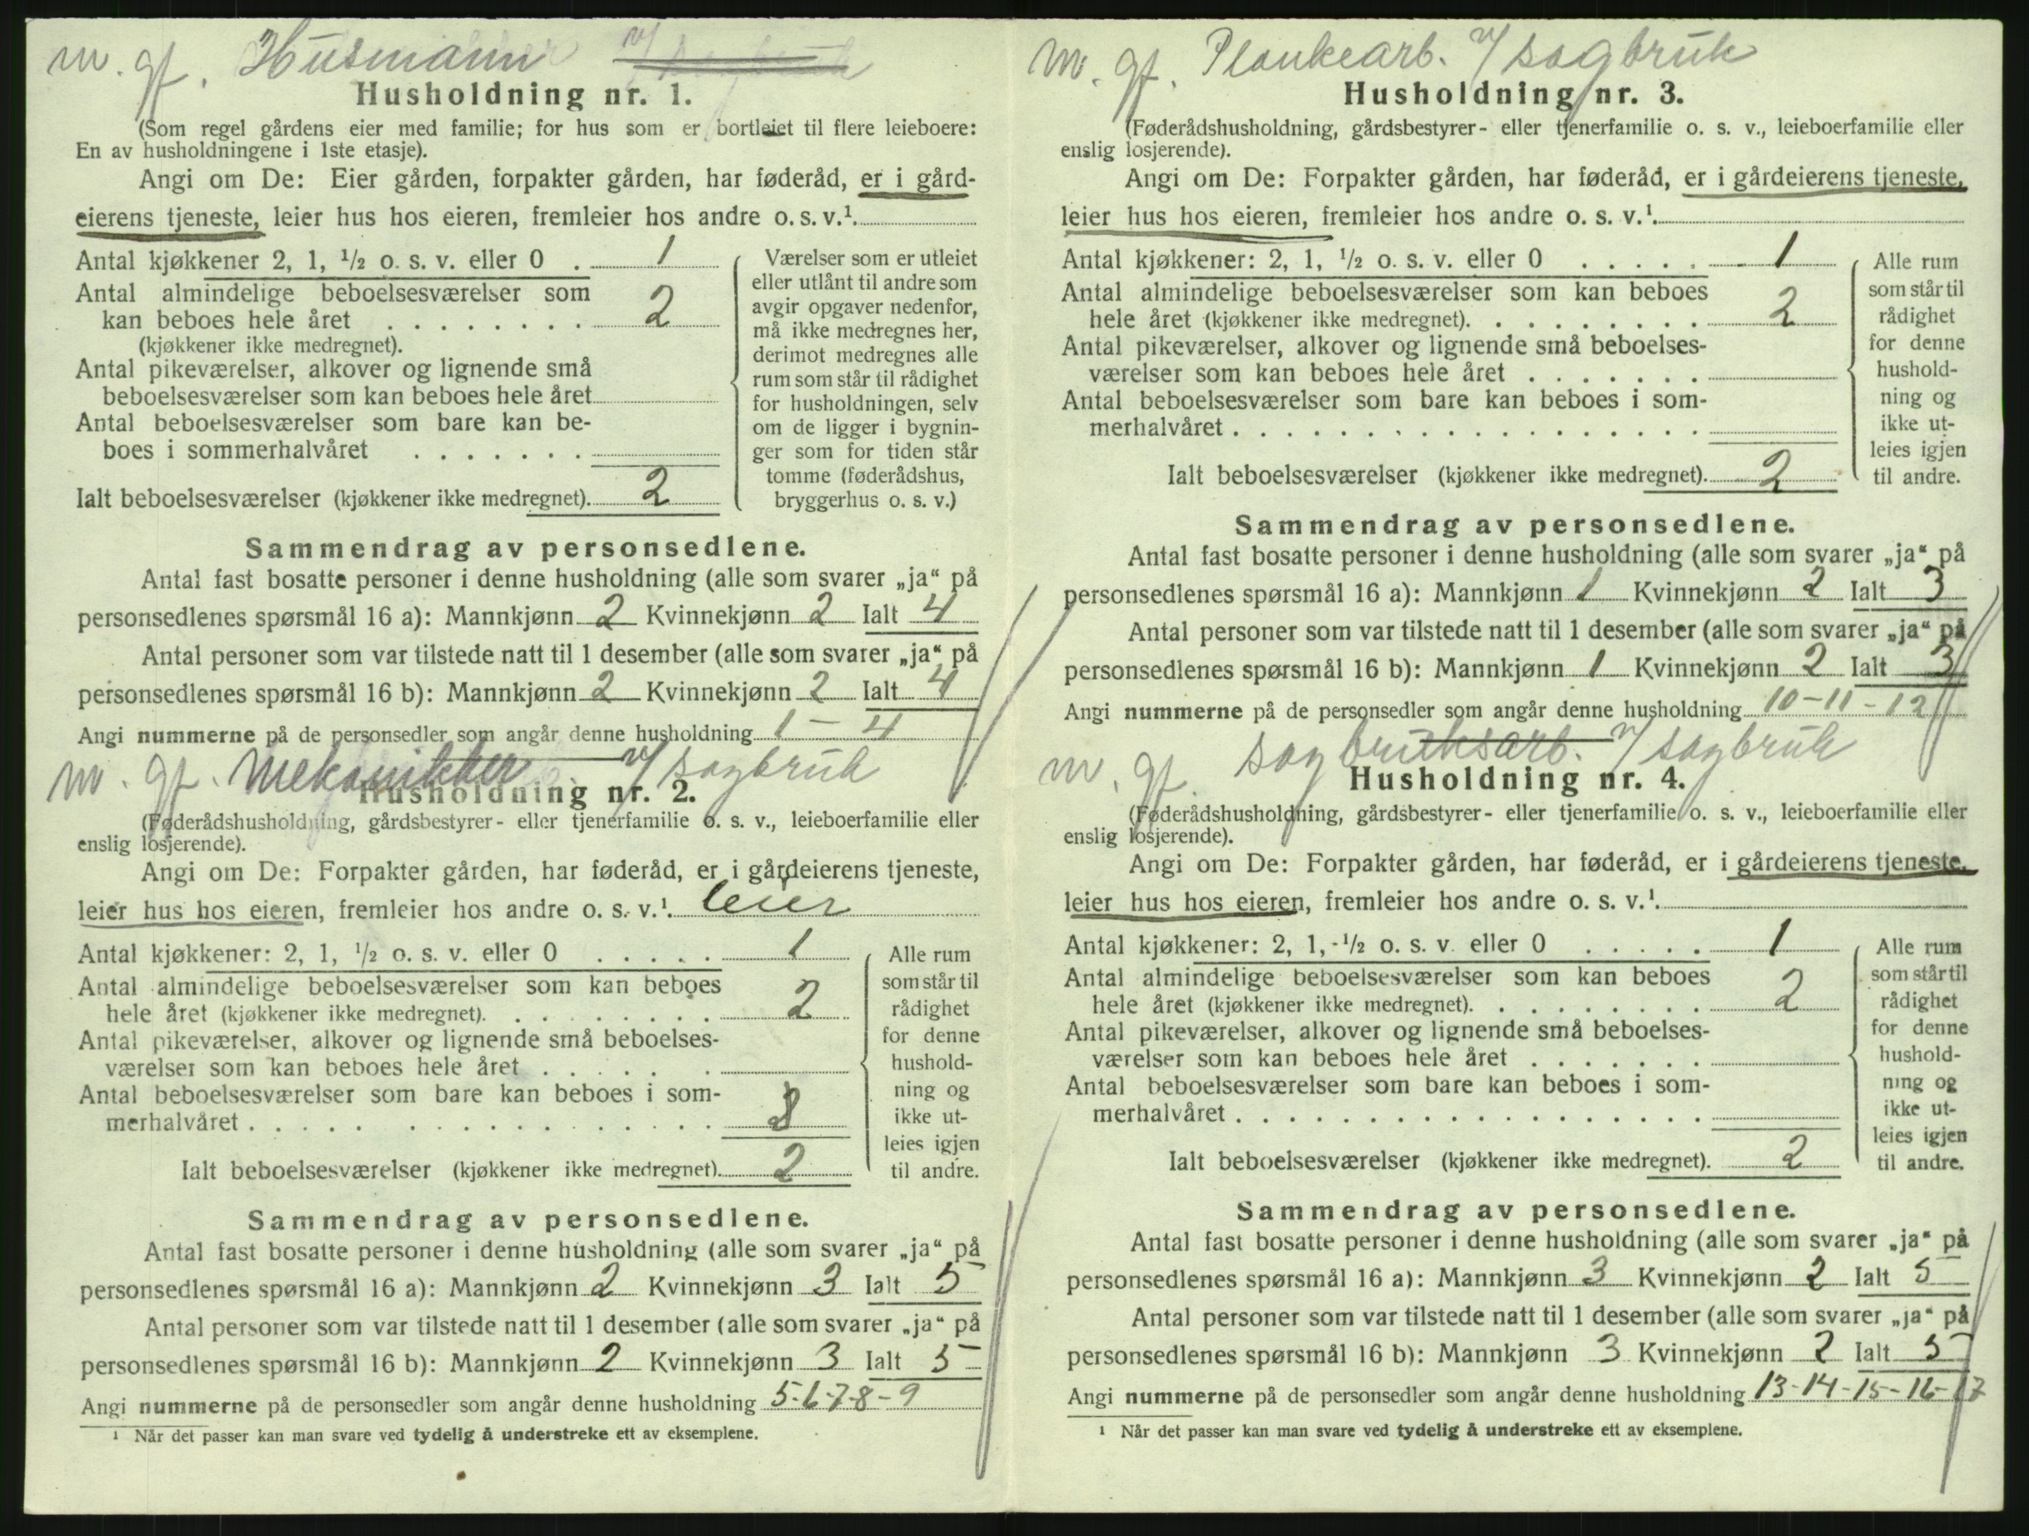 m. gf. Husmann v/ sagbruk
Husholdning nr. 1.
(Som regel gårdens eier med familie; for hus som er bortleiet til flere leieboere:
En av husholdningene i 1ste etasje).
Angi om De: Eier gården, forpakter gården, har føderåd, er i gård-
eierens tjeneste, leier hus hos eieren, fremleier hos andre o. s. v.¹
Antal kjøkkener 2, 1, ½ o. s. v. eller 0 . 1
Antal almindelige beboelsesværelser som
kan beboes hele året . . . . . . . . 2
(kjøkkener ikke medregnet).
Antal pikeværelser, alkover og lignende små
beboelsesværelser som kan beboes hele året
Antal beboelsesværelser som bare kan be-
boes i sommerhalvåret . . . . . . .
Ialt beboelsesværelser (kjøkkener ikke medregnet). 2
Værelser som er utleiet
eller utlånt til andre som
avgir opgaver nedenfor,
må ikke medregnes her,
derimot medregnes alle
rum som står til rådighet
for husholdningen, selv
om de ligger i bygnin-
ger som for tiden står
tomme (føderådshus,
bryggerhus o. s. v.)
Sammendrag av personsedlene.
Antal fast bosatte personer i denne husholdning (alle som svarer „ja“ på
personsedlenes spørsmål 16 a): Mannkjønn 2 Kvinnekjønn 2 Ialt 4
Antal personer som var tilstede natt til 1 desember (alle som svarer „ja“ på
personsedlenes spørsmål 16 b): Mannkjønn 2 Kvinnekjønn 2 Ialt 4
Angi nummerne på de personsedler som angår denne husholdning 1 – 4
m. gf. Mekanikker v/ sagbruk
Husholdning nr. 2.
(Føderådshusholdning, gårdsbestyrer- eller tjenerfamilie o. s. v., leieboerfamilie eller
enslig losjerende).
Angi om De: Forpakter gården, har føderåd, er i gårdeierens tjeneste,
leier hus hos eieren, fremleier hos andre o. s. v.¹. leier
Antal kjøkkener: 2, 1, ½ o. s. v. eller 0 . . . . . 1
Antal almindelige beboelsesværelser som kan beboes
hele året (kjøkkener ikke medregnet). . . . . . . . 2
Antal pikeværelser, alkover og lignende små beboelses-
værelser som kan beboes hele året . . . . . .
Antal beboelsesværelser som bare kan beboes i som-
merhalvåret . . . . . . . . . . . . . . . .
Ialt beboelsesværelser (kjøkkener ikke medregnet). 2
Alle rum
som står til
rådighet
for denne
hushold-
ning og
ikke ut-
leies igjen
til andre.
Sammendrag av personsedlene.
Antal fast bosatte personer i denne husholdning (alle som svarer „ja“ på
personsedlenes spørsmål 16 a): Mannkjønn 2 Kvinnekjønn 3 Ialt 5
Antal personer som var tilstede natt til 1 desember (alle som svarer „ja“ på
personsedlenes spørsmål 16 b): Mannkjønn 2 Kvinnekjønn 3 Ialt 5
Angi nummerne på de personsedler som angår denne husholdning 5-6-7-8-9
¹ Når det passer kan man svare ved tydelig å understreke ett av eksemplene.
m. gf. Plankearb. v/ sagbruk
Husholdning nr. 3.
(Føderådshusholdning, gårdsbestyrer- eller tjenerfamilie o. s. v., leieboerfamilie eller
enslig losjerende).
Angi om De: Forpakter gården, har føderåd, er i gårdeierens tjeneste,
leier hus hos eieren, fremleier hos andre o. s. v.¹.
Antal kjøkkener: 2, 1, ½ o. s. v. eller 0 . . . . . 1
Antal almindelige beboelsesværelser som kan beboes
hele året (kjøkkener ikke medregnet). . . . . . . . 2
Antal pikeværelser, alkover og lignende små beboelses-
værelser som kan beboes hele året . . . . . . .
Antal beboelsesværelser som bare kan beboes i som-
merhalvåret . . . . . . . . . . . . . . . . . .
Ialt beboelsesværelser (kjøkkener ikke medregnet). 2
Alle rum
som står til
rådighet
for denne
hushold-
ning og
ikke ut-
leies igjen
til andre.
Sammendrag av personsedlene.
Antal fast bosatte personer i denne husholdning (alle som svarer „ja“ på
personsedlenes spørsmål 16 a): Mannkjønn 1 Kvinnekjønn 2 Ialt 3
Antal personer som var tilstede natt til 1 desember (alle som svarer „ja“ på
personsedlenes spørsmål 16 b): Mannkjønn 1 Kvinnekjønn 2 Ialt 3
Angi nummerne på de personsedler som angår denne husholdning 10-11-12
m. gf. sagbruksarb. v/ sagbruk
Husholdning nr. 4.
(Føderådshusholdning, gårdsbestyrer- eller tjenerfamilie o. s. v., leieboerfamilie eller
enslig losjerende).
Angi om De: Forpakter gården, har føderåd, er i gårdeierens tjeneste,
leier hus hos eieren, fremleier hos andre o. s. v.¹.
Antal kjøkkener: 2, 1, ½ o. s. v. eller 0 . . . . . 1
Antal almindelige beboelsesværelser som kan beboes
hele året (kjøkkener ikke medregnet). . . . . . . . 2
Antal pikeværelser, alkover og lignende små beboelses-
værelser som kan beboes hele året . . . . . . .
Antal beboelsesværelser som bare kan beboes i som-
merhalvåret . . . . . . . . . . . . . . . . . .
Ialt beboelsesværelser (kjøkkener ikke medregnet). 2
Alle rum
som står til
rådighet
for denne
hushold-
ning og
ikke ut-
leies igjen
til andre.
Sammendrag av personsedlene.
Antal fast bosatte personer i denne husholdning (alle som svarer „ja“ på
personsedlenes spørsmål 16 a): Mannkjønn 3 Kvinnekjønn 2 Ialt 5
Antal personer som var tilstede natt til 1 desember (alle som svarer „ja“ på
personsedlenes spørsmål 16 b): Mannkjønn 3 Kvinnekjønn 2 Ialt 5
Angi nummerne på de personsedler som angår denne husholdning 13-14-15-16-17
¹ Når det passer kan man svare ved tydelig å understreke ett av eksemplene.